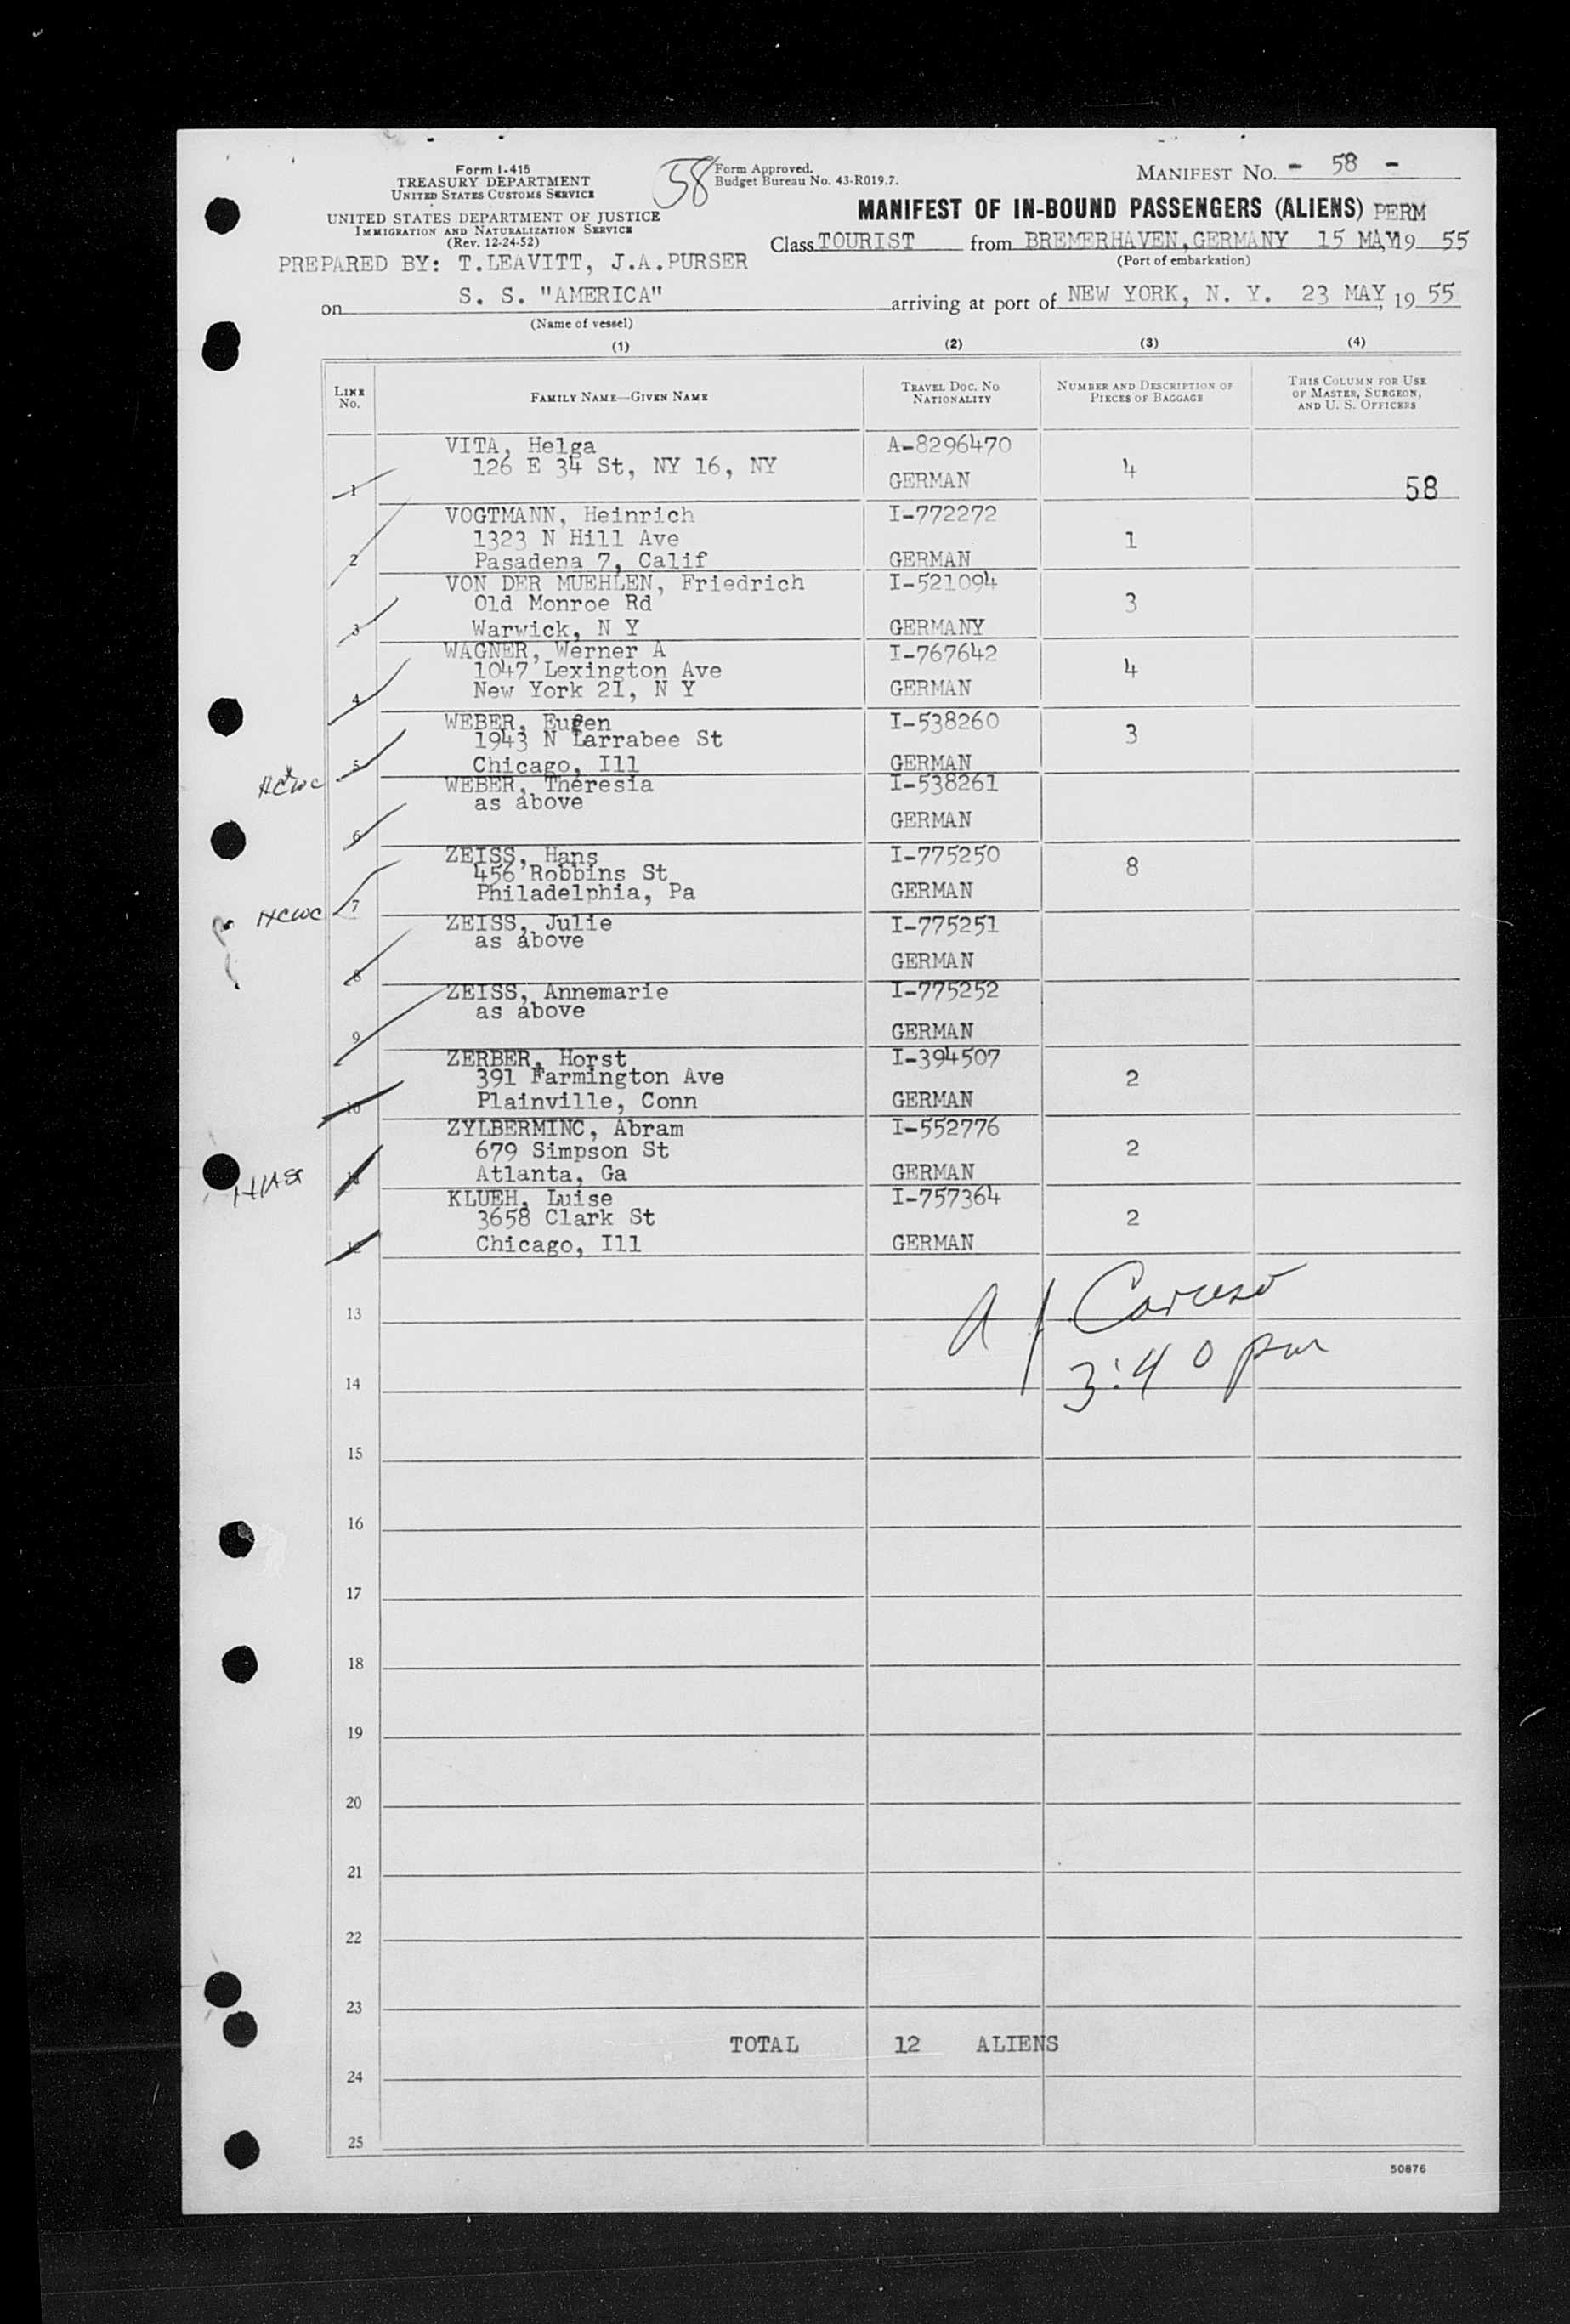 Form I-415
TREASURY DEPARTMENT
UNITED STATES CUSTOMS SERVICE
UNITED STATES DEPARTMENT OF JUSTICE
IMMIGRATION AND NATURALIZATION SERVICE
(Rev. 12-24-52)
58
Form Approved.
Budget Bureau No. 43-R019.7.
MANIFEST NO. - 58 -
MANIFEST OF IN-BOUND PASSENGERS (ALIENS) PERM
Class TOURIST from BREMERHAVEN, GERMANY 15 MAY, 19 55
(Port of embarkation)
PREPARED BY: T.LEAVITT, J.A.PURSER
on S. S. "AMERICA" arriving at port of NEW YORK, N. Y. 23 MAY, 19 55
(Name of vessel)
(1) (2) (3) (4)
LINE NO. FAMILY NAME—GIVEN NAME TRAVEL DOC. NO. NATIONALITY NUMBER AND DESCRIPTION OF PIECES OF BAGGAGE THIS COLUMN FOR USE OF MASTER, SURGEON, AND U. S. OFFICERS
VITA, Helga A-8296470
126 E 34 St, NY 16, NY 4
1 GERMAN 58
VOGTMANN, Heinrich I-772272
1323 N Hill Ave 1
2 Pasadena 7, Calif GERMAN
VON DER MUEHLEN, Friedrich I-521094
Old Monroe Rd 3
3 Warwick, N Y GERMANY
WAGNER, Werner A I-767642
1047 Lexington Ave 4
4 New York 21, N Y GERMAN
WEBER, Eugen I-538260
1943 N Larrabee St 3
5 Chicago, Ill GERMAN
WEBER, Theresia I-538261
as above
6 GERMAN
ZEISS, Hans I-775250
456 Robbins St 8
HCWC 7 Philadelphia, Pa GERMAN
ZEISS, Julie I-775251
as above
8 GERMAN
ZEISS, Annemarie I-775252
as above
9 GERMAN
ZERBER, Horst I-394507
391 Farmington Ave 2
10 Plainville, Conn GERMAN
ZYLBERMINC, Abram I-552776
679 Simpson St 2
HIAS 11 Atlanta, Ga GERMAN
KLUEH, Luise I-757364
3658 Clark St 2
12 Chicago, Ill GERMAN
Caruso
13
3:40 pm
14
15
16
17
18
19
20
21
22
23
TOTAL 12 ALIENS
24
25
50876